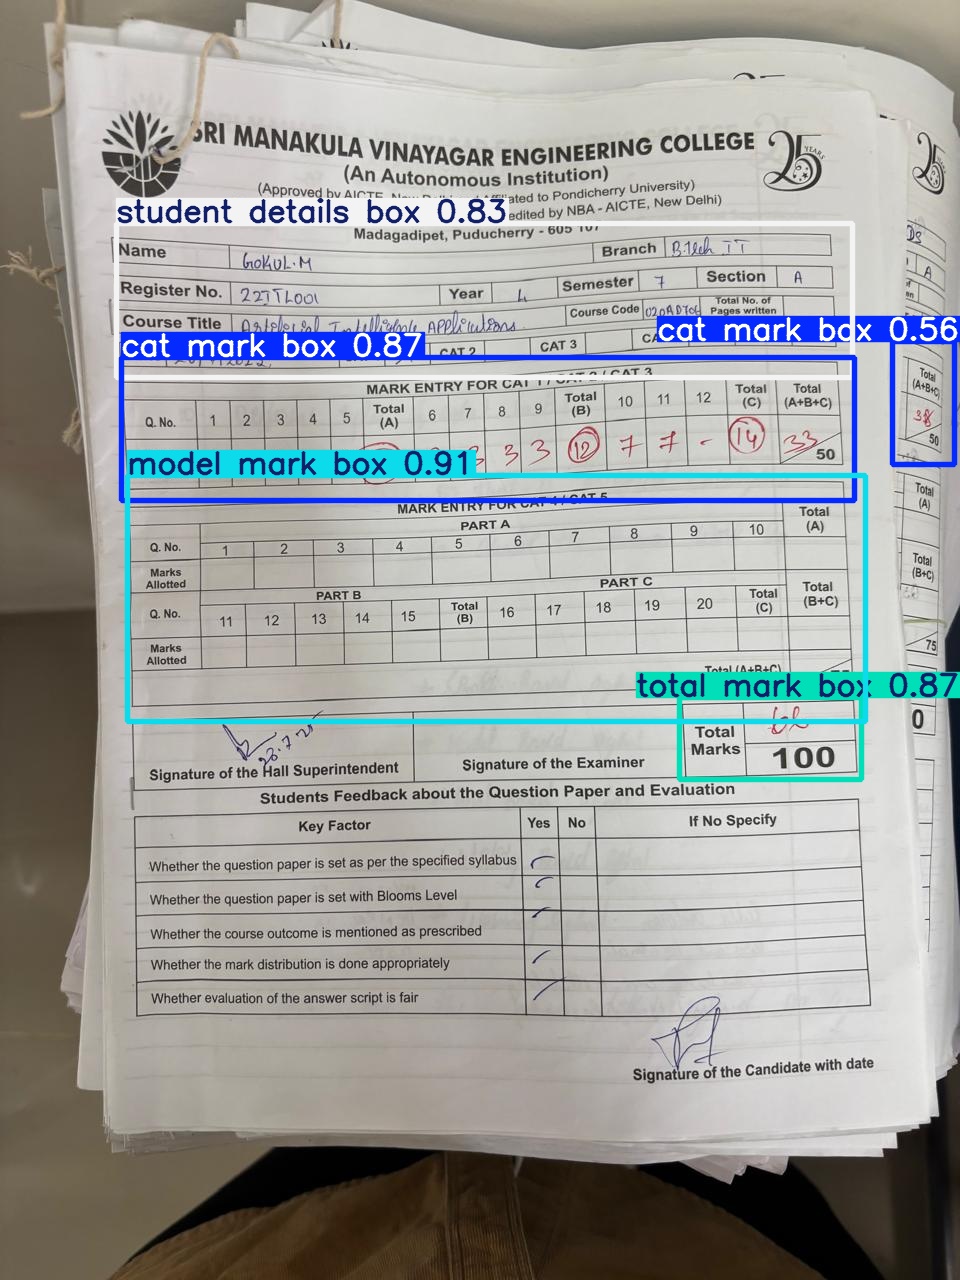 SRI MANAKULA VINAYAGAR ENGINEERING COLLEGE
25 YEARS
(An Autonomous Institution)
(Approved by AICTE, New Delhi and Affiliated to Pondicherry University)
edited by NBA - AICTE, New Delhi)
student details box 0.83
Madagadipet, Puducherry - 605 107
Name GOKUL.M Branch B.Tech IT
Register No. 22ITL001 Year 4 Semester 7 Section A
Course Title Artificial Intelligence Applications Course Code Total No. of Pages written
cat mark box 0.87 cat mark box 0.56
CAT 2 CAT 3
MARK ENTRY FOR CAT 1 / CAT 2 / CAT 3
Q. No. 1 2 3 4 5 Total (A) 6 7 8 9 Total (B) 10 11 12 Total (C) Total (A+B+C)
3 3 3 12 7 7 - 14 33/50
model mark box 0.91
MARK ENTRY FOR CAT 4 / CAT 5
PART A Total (A)
Q. No. 1 2 3 4 5 6 7 8 9 10
Marks Allotted
PART B PART C
Q. No. 11 12 13 14 15 Total (B) 16 17 18 19 20 Total (C) Total (B+C)
Marks Allotted
Total (A+B+C)
total mark box 0.87
Total Marks 100
Signature of the Hall Superintendent Signature of the Examiner
Students Feedback about the Question Paper and Evaluation
Key Factor Yes No If No Specify
Whether the question paper is set as per the specified syllabus
Whether the question paper is set with Blooms Level
Whether the course outcome is mentioned as prescribed
Whether the mark distribution is done appropriately
Whether evaluation of the answer script is fair
Signature of the Candidate with date
25
DS
A
Total (A+B+C)
50
Total (A)
Total (B+C)
75
0